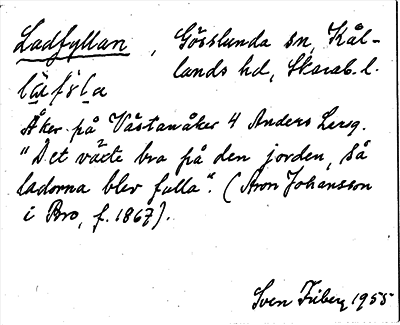 Ladfyllan, Gösslunda sn, Kål-
lands hd, Skarab. l.
Åker på Västanåker 4 Anders Lersg.
"Det växte bra på den jorden, så
ladorna blev fulla". (Aron Johansson
i Bro, f. 1867).
Sven Friberg 1955